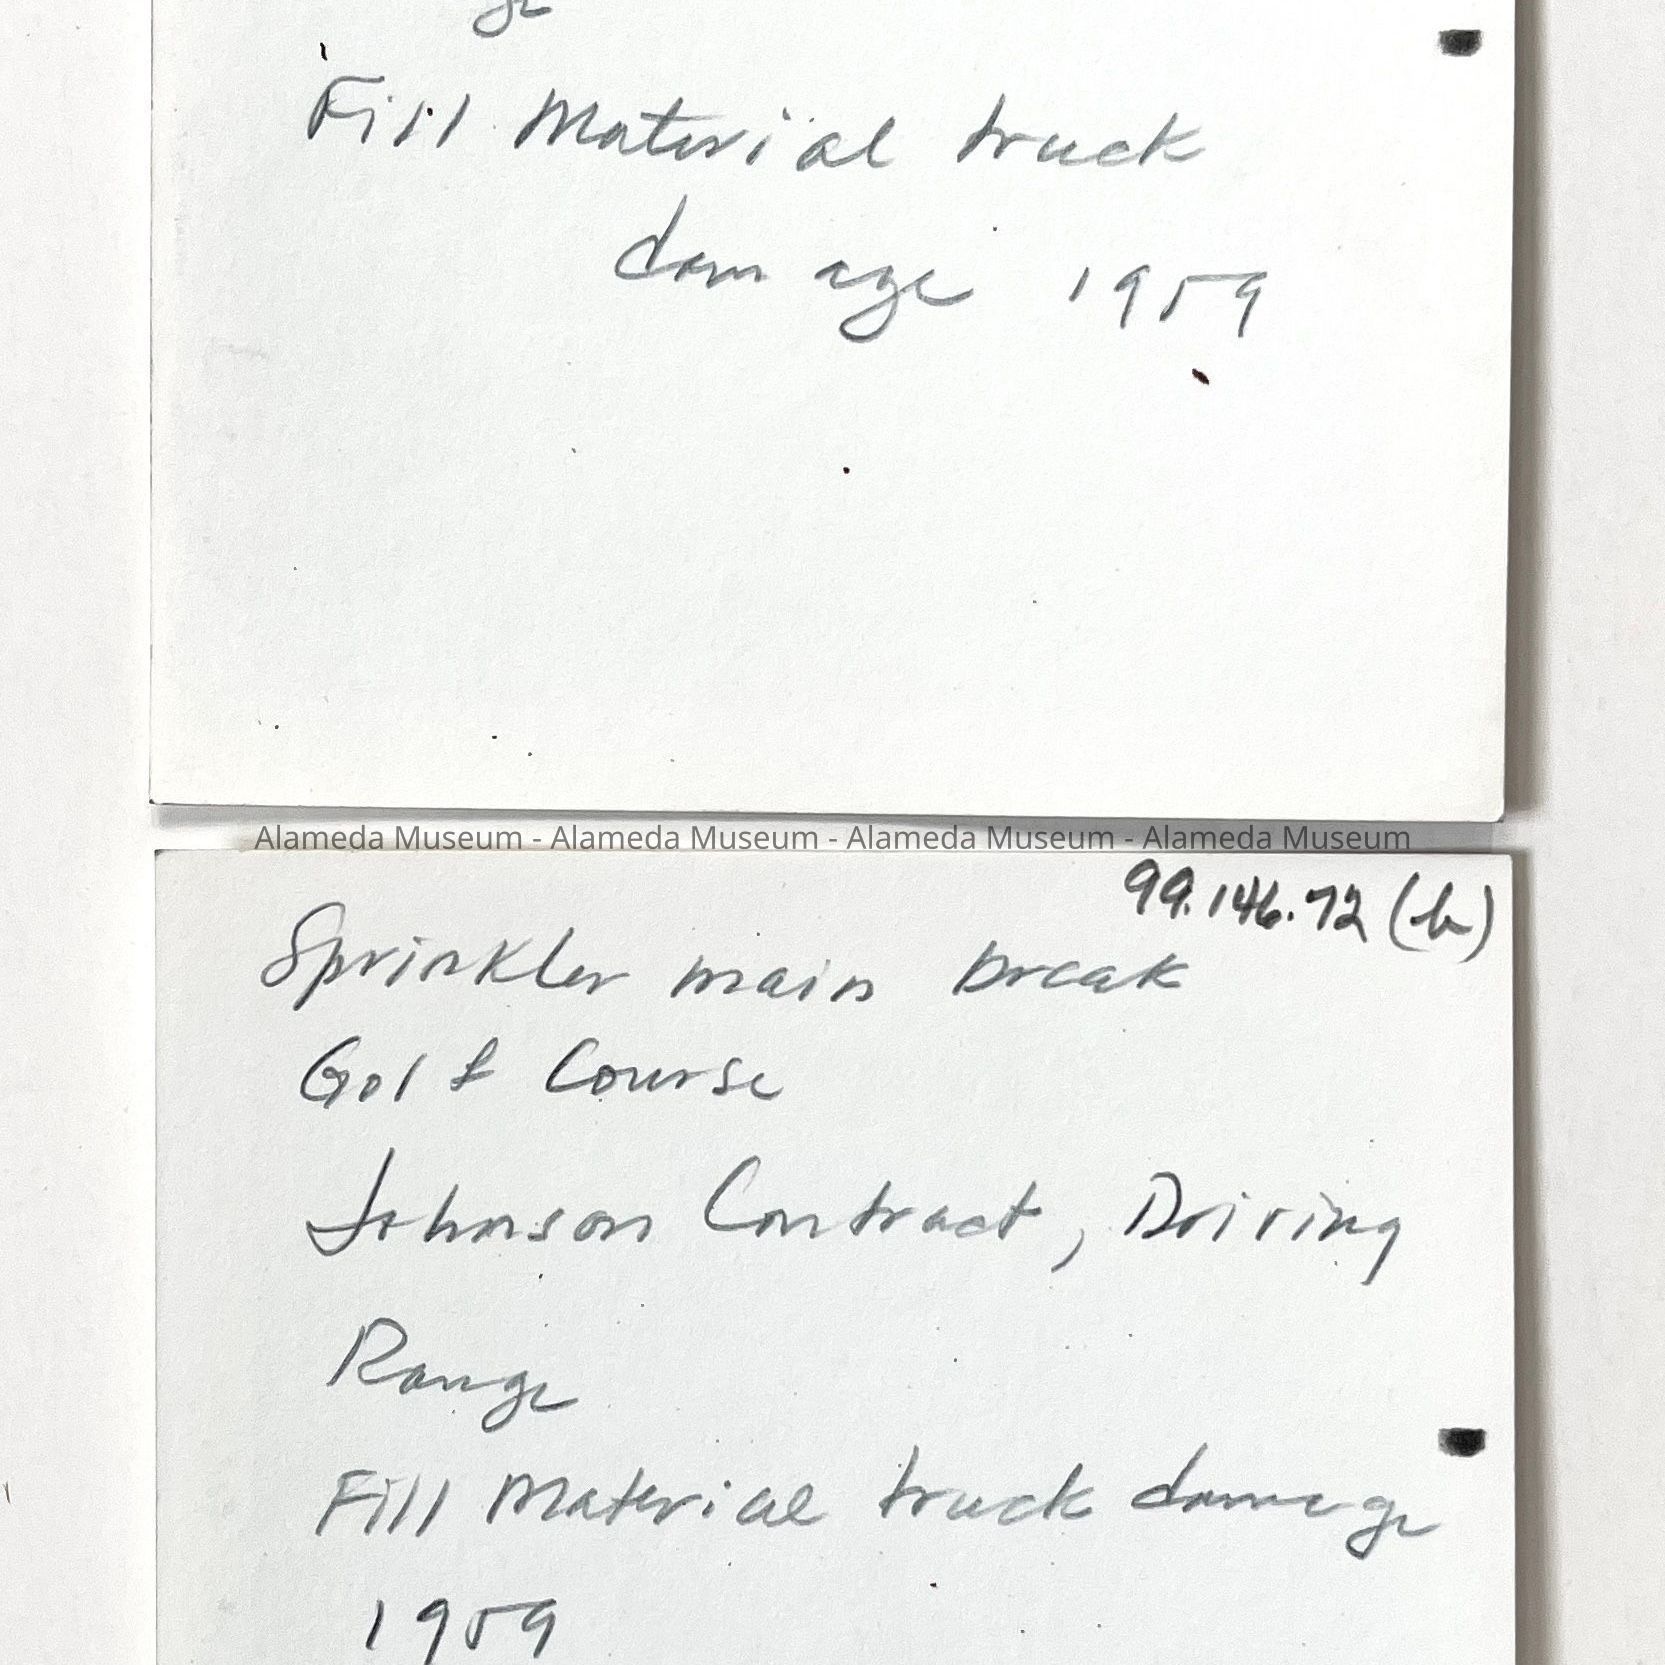 ge
Fill Material truck
damage 1959
Alameda Museum - Alameda Museum - Alameda Museum - Alameda Museum
99.146.72 (b)
Sprinkler main break
Golf Course
Johnson Contract, Driving
Range
Fill Material truck damage
1959